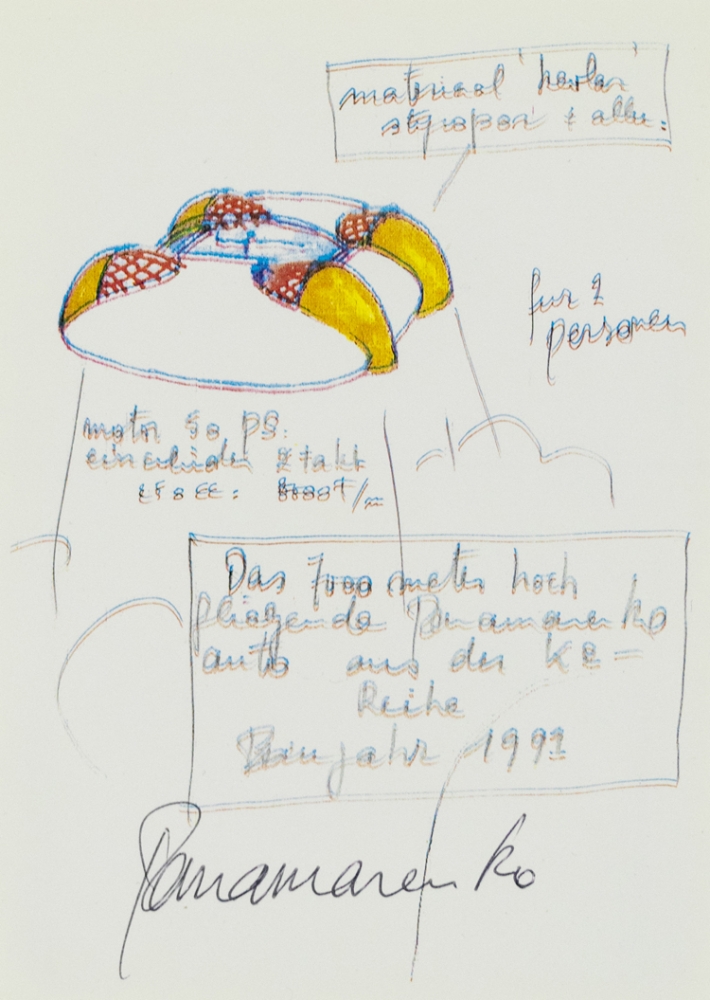 materiaal kevlar
styropor + allu.
fur 2
personen
motor 50 PS.
2 takt
Das 7000 meter hoch
fliegende Panamarenko
auto aus der K2=
Reihe
Baujahr 1991
Panamarenko